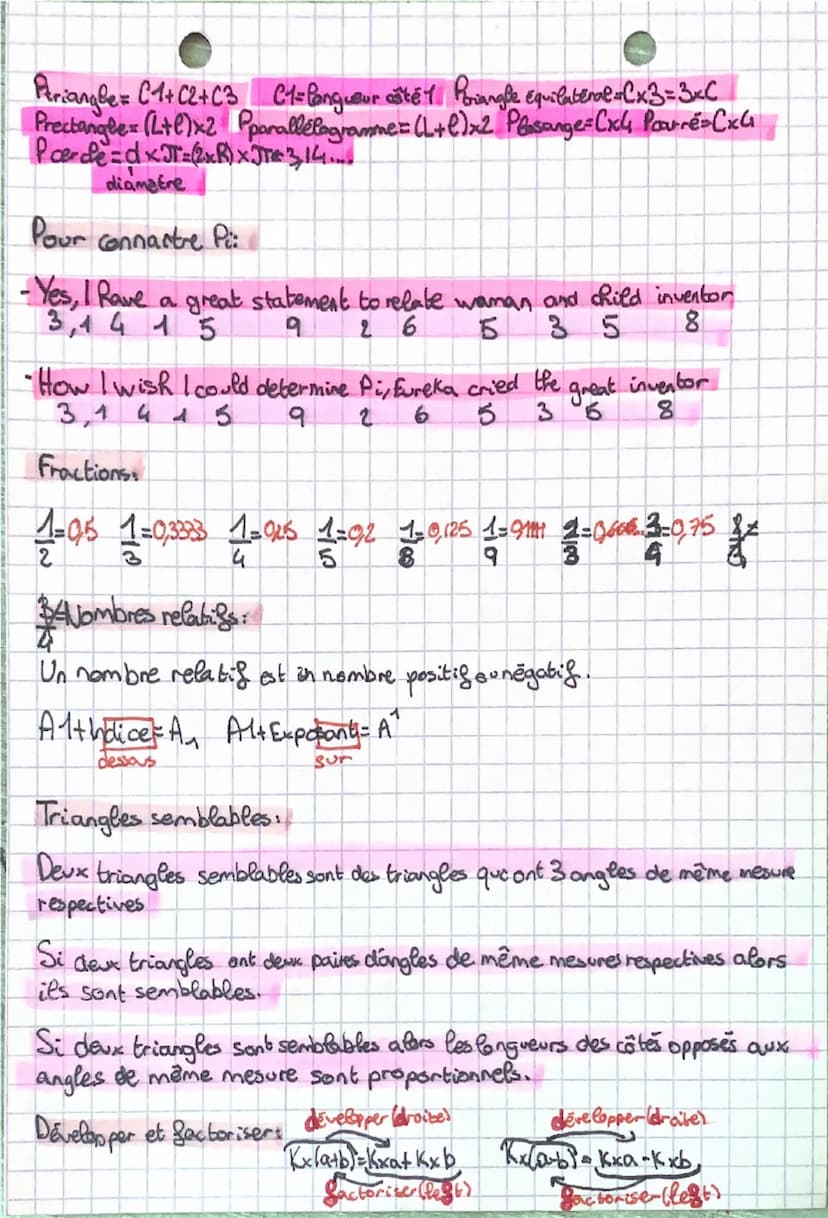 Ptriangle= C1+C2+C3 C1=longueur côté 1 Ptriangle équilatéral=Cx3=3xC
Prectangle=(L+l)x2 Pparallélogramme=(L+l)x2 Plosange=Cx4 Pcarré=Cx4
Pcercle=dxπ=(2xR)xπ≈3,14....
diamètre
Pour connaitre Pi:
-Yes, I have a great statement to relate woman and child inventor
3,1 4 1 5 9 2 6 5 3 5 8
-How I wish I could determine Pi, Eureka cried the great inventor
3,1 4 1 5 9 2 6 5 3 5 8
Fractions:
1/2=0,5 1/3=0,3333 1/4=0,25 1/5=0,2 1/8=0,125 1/9=0,1111 2/3=0,666.. 3/4=0,75
Nombres relatifs:
Un nombre relatif est un nombre positif ou négatif.
A1+Indice=A₁ A1+Exposant=A¹
dessous sur
Triangles semblables:
Deux triangles semblables sont des triangles que ont 3 angles de même mesure
respectives
Si deux triangles ont deux paires d'angles de même mesures respectives alors
ils sont semblables.
Si deux triangles sont semblables alors les longueurs des côtés opposés aux
angles de même mesure sont proportionnels.
développer(droite) développer(droite)
Développer et factoriser: Kx(a+b)=Kxa+Kxb Kx(a-b)=Kxa-Kxb
factoriser(left) factoriser(left)